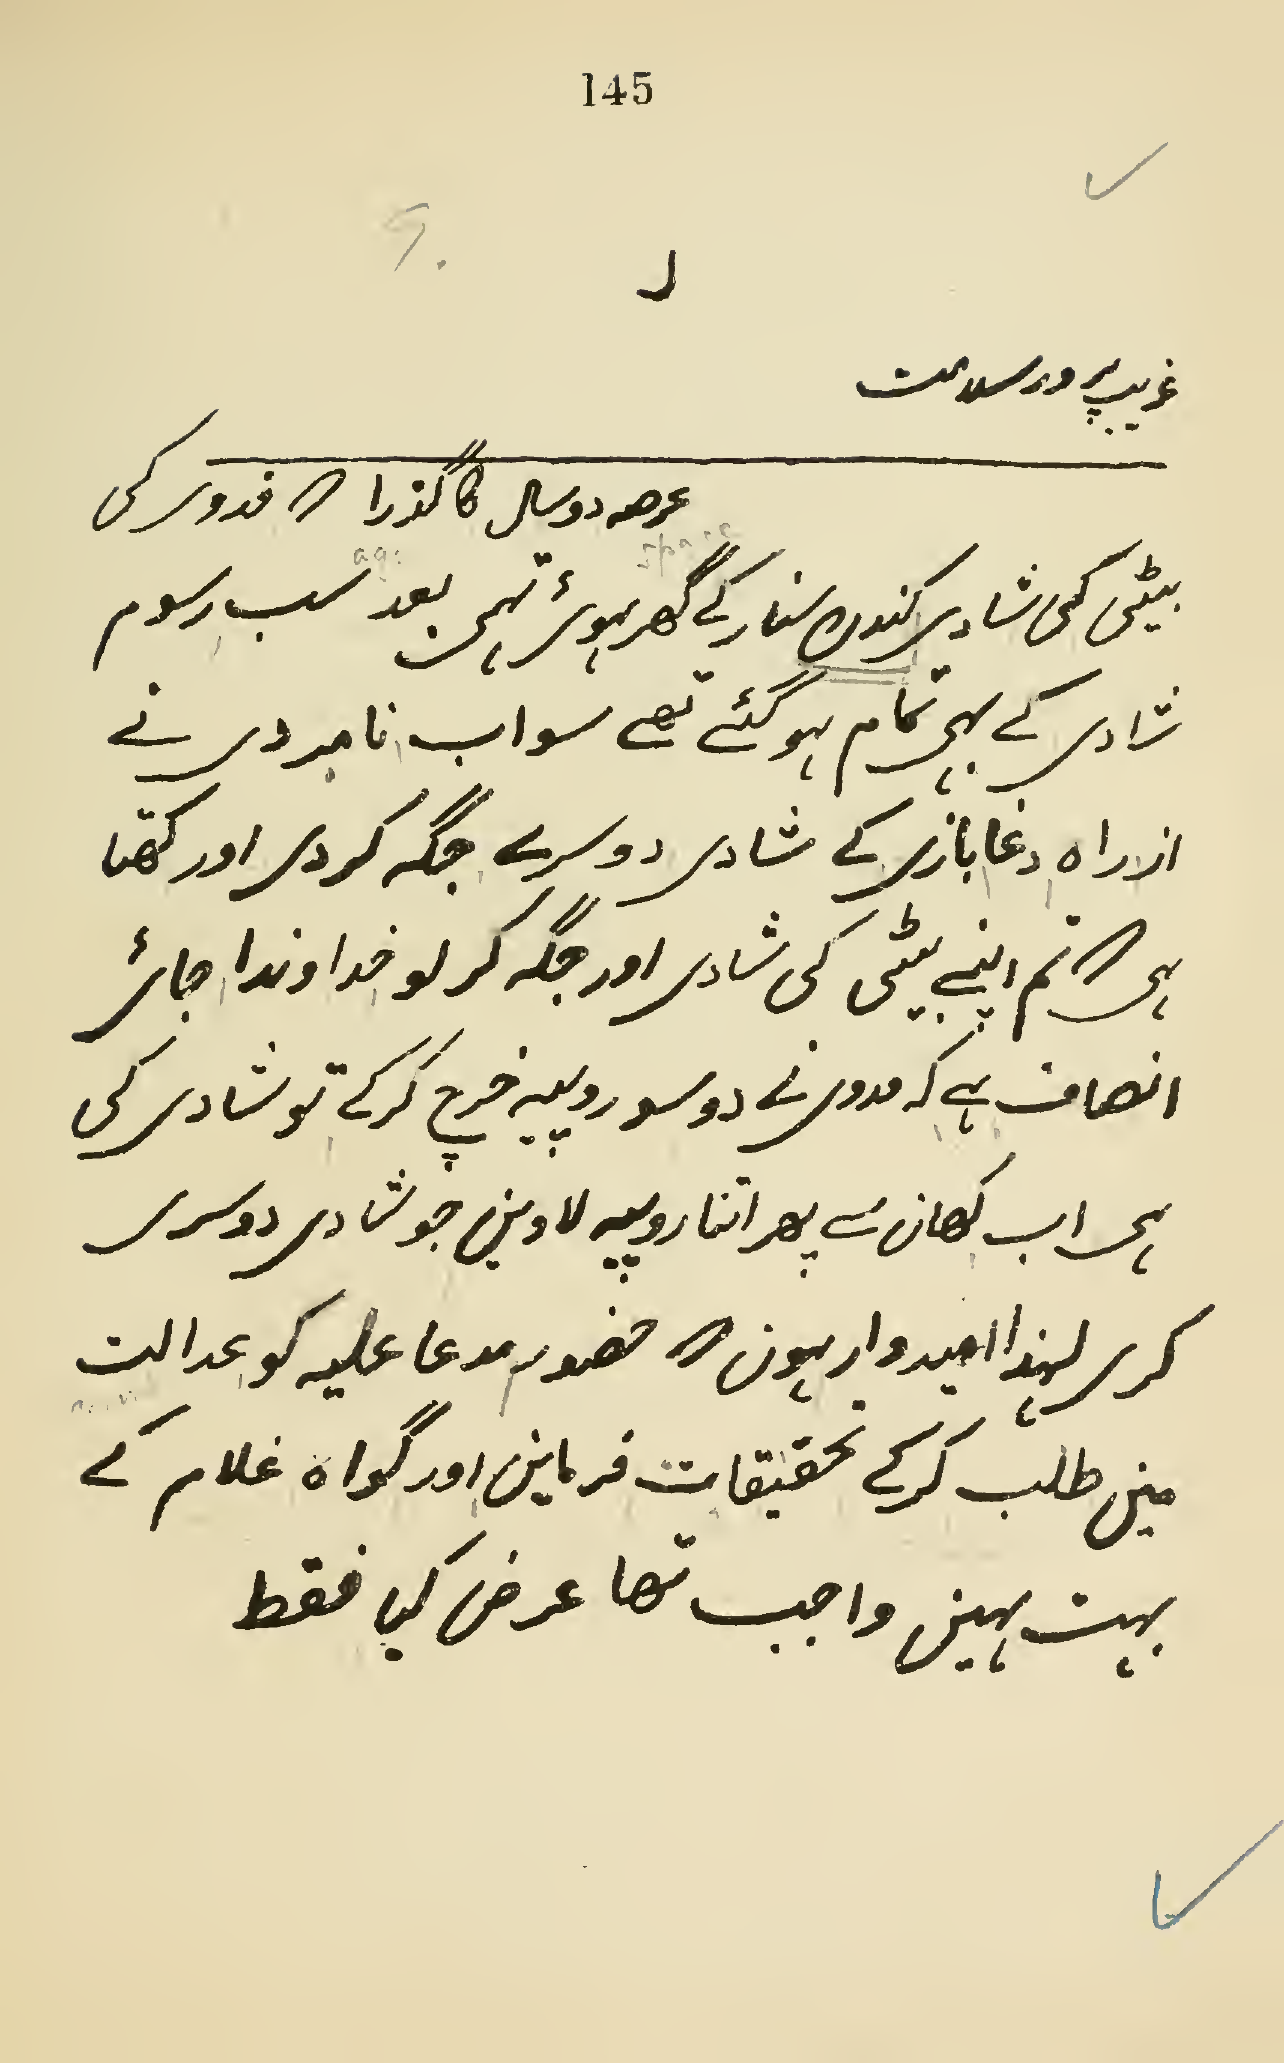 145
غریب پرور سلامت
عرصہ دو سال کا گذرا کہ فدوی کی
بیٹی کی شادی کندن سنار کے گھر ہوئی تہی بعد سب رسوم
شادی کے بہی تمام ہو گئے تھے سو اب نامبردی نے
از راہ دغابازی کے شادی دوسرے جگہ کر دی اور کھتا
ہی کہ تم اپنے بیٹی کی شادی اور جگہ کر لو خداوندا جائ
انصاف ہے کہ فدوی نے دو سو روپیہ خرچ کر کے تو شادی کی
ہی اب کھان سے پھر اتنا روپیہ لاوین جو شادی دوسری
کری لہذا امیدوار ہون کہ حضور مدعا علیہ کو عدالت
مین طلب کر کے تحقیقات فرماین اور گواہ غلام کے
بہت ہین واجب تھا عرض کیا فقط